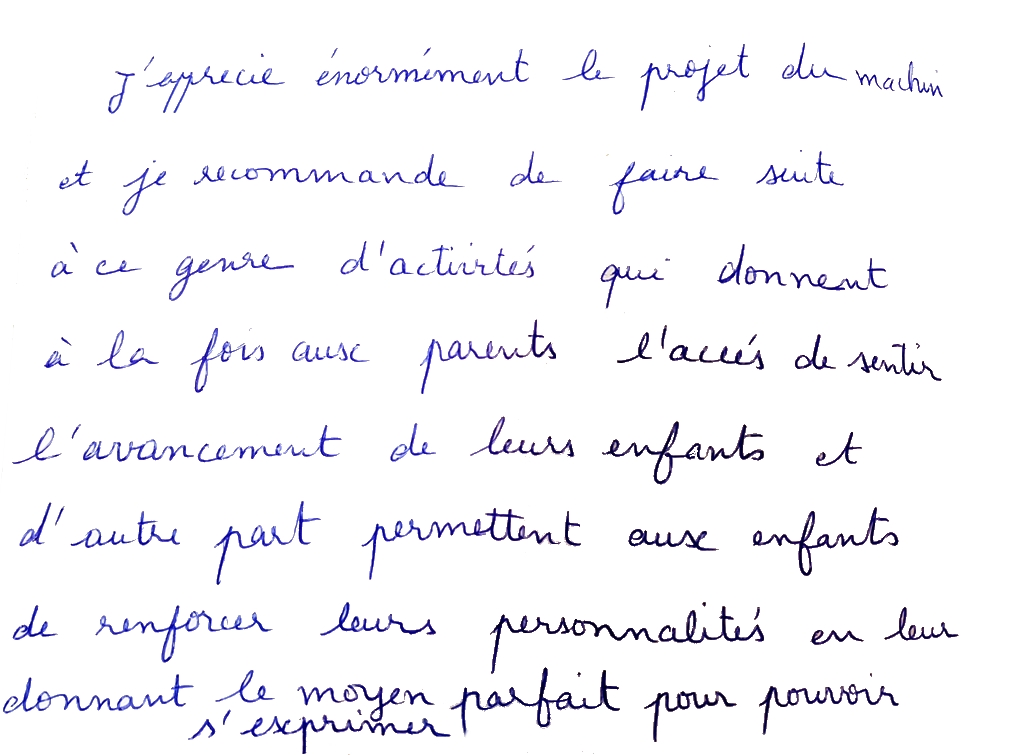 J'apprecie énormément le projet du machin
et je recommande de faire suite
à ce genre d'activités qui donnent
à la fois aux parents l'accés de sentir
l'avancement de leurs enfants et
d'autre part permettent aux enfants
de renforcer leurs personnalités en leur
donnant le moyen parfait pour pouvoir
s'exprimer